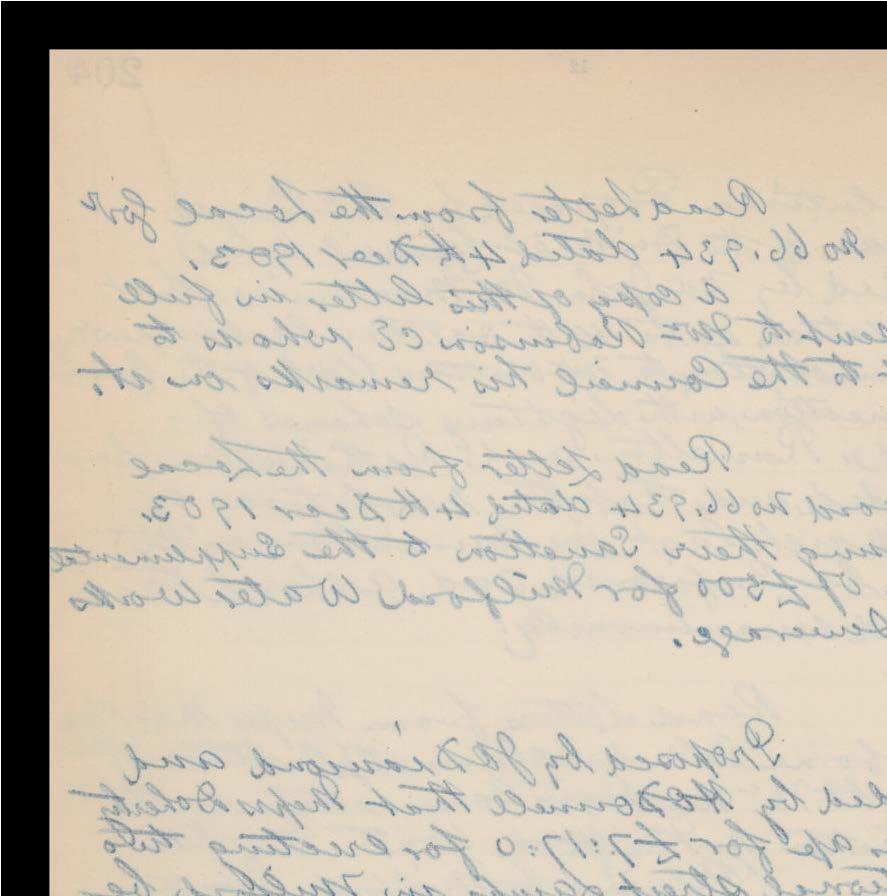 204
Read Letter from the Local Gov
No 66.934 dated 4th Decr 1903.
a copy of this letter in full
sent to Mr. Robinson CE who is to
to the Council his remarks on it.
Read Letter from the Local
No 66.934 dated 4th Decr 1903.
their Sanction to the Supplemental
of £500 for Milford Water Works
Sewerage.
Proposed by J Diamond and
by H O'Donnell that Messrs Doherty
for £7:17:0 for erecting two
street lamps in Milford be